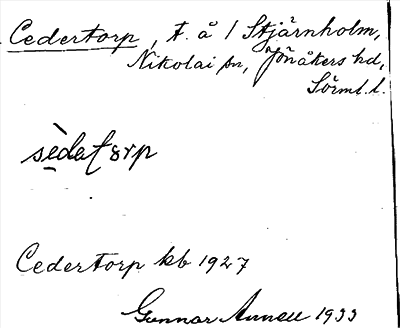 Cedertorp, t. å 1 Stjärnholm,
Nikolai sn, Jönåkers hd,
Sörml. l.
Cedertorp kb 1927
Gunnar Annell 1933